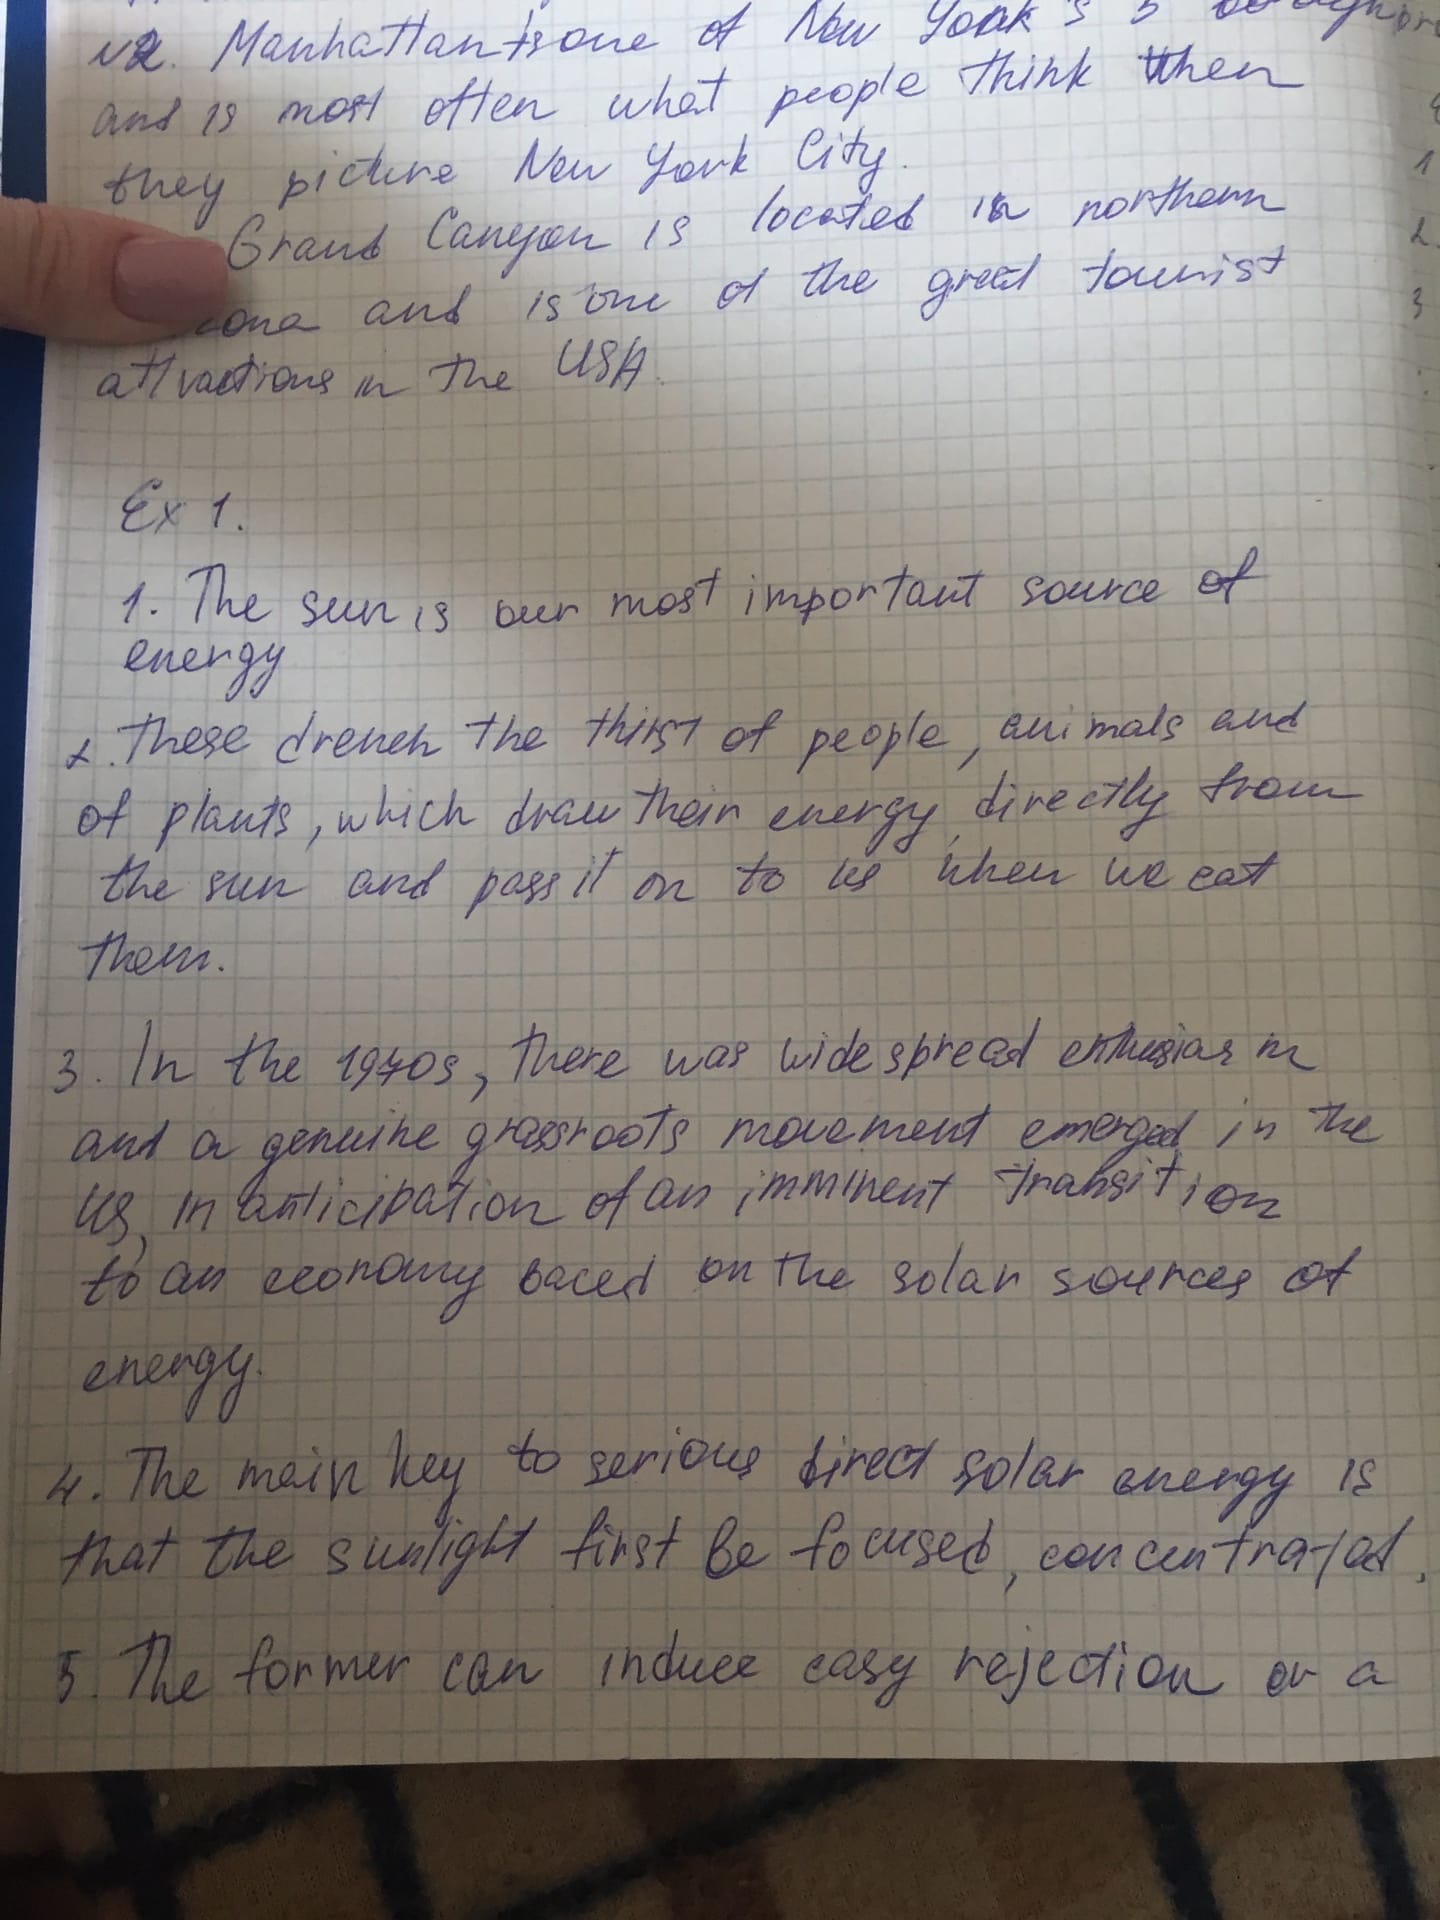 №2. Manhattan is one of New York's 5
and is most often what people think when
they picture New York City.
Grand Canyon is located in northern
and is one of the great tourist
attractions in the USA.
Ex 1.
1. The sun is our most important source of
energy
2. These drench the thirst of people, animals and
of plants, which draw their energy directly from
the sun and pass it on to us when we eat
them.
3. In the 1970s, there was widespread enthusiasm
and a genuine grassroots movement emerged in the
US, in anticipation of an imminent transition
to an economy baced on the solar sources of
energy.
4. The main key to serious direct solar energy is
that the sunlight first be focused, concentrated,
5. The former can induce easy rejection or a